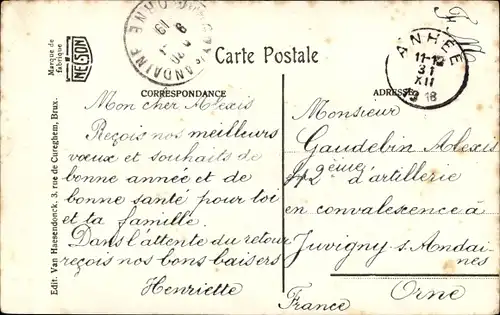 Marque de
fabrique
NELSON
Edit. Van Haesendonck, 3, rue de Cureghem, Brux.
Carte Postale
F. M.
ANHÉE
11-12
31
XII
1918
CORRESPONDANCE
Mon cher Alexis
Reçois nos meilleurs
vœux et souhaits de
bonne année et de
bonne santé pour toi
et ta famille
Dans l'attente du retour
reçois nos bons baisers
Henriette
ADRESSE
Monsieur
Gaudebin Alexis
2ème d'artillerie
en convalescence à
Juvigny s. Andai-
nes
Orne
France